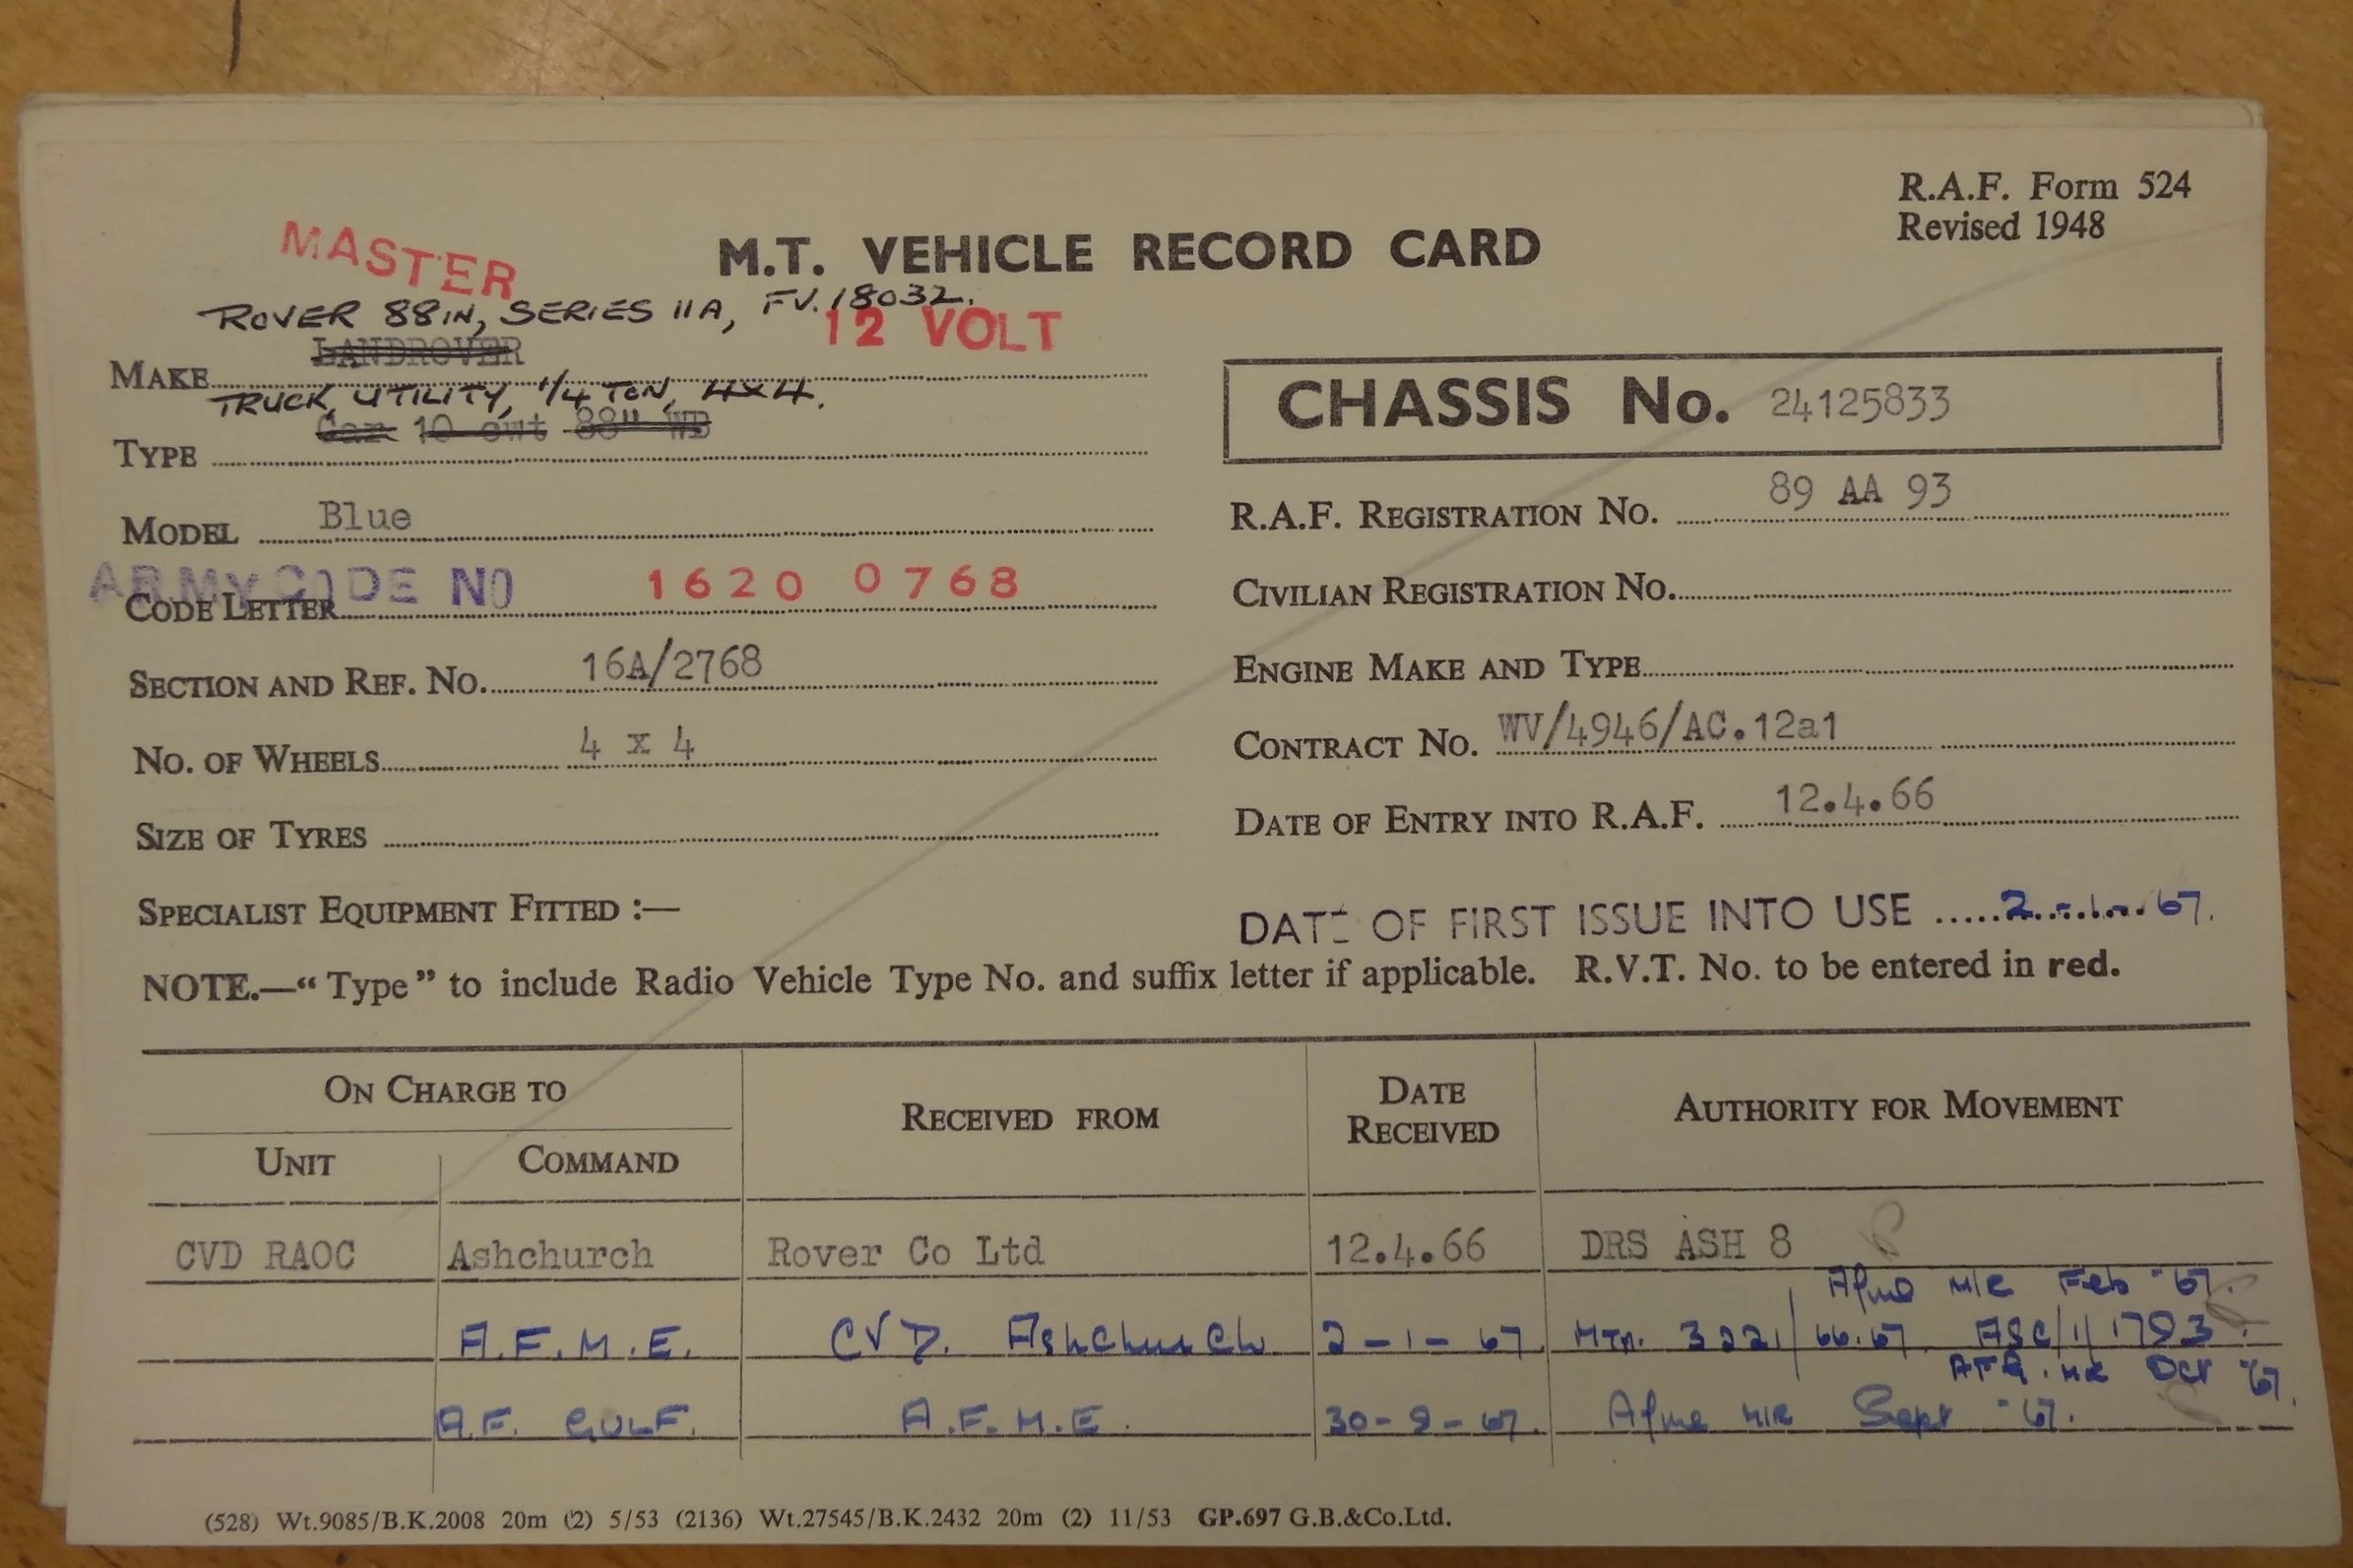 R.A.F. Form 524
Revised 1948
MASTER
M.T. VEHICLE RECORD CARD
ROVER 88IN, SERIES IIA, FV.18032.
12 VOLT
LANDROVER
MAKE
TRUCK, UTILITY, 1/4 TON, 4X4.
Car 10 cwt 88" WB
TYPE
CHASSIS No. 24125833
MODEL Blue
R.A.F. REGISTRATION No. 89 AA 93
ARMY CODE NO
CODE LETTER 1620 0768
CIVILIAN REGISTRATION No.
SECTION AND REF. No. 16A/2768
ENGINE MAKE AND TYPE
No. OF WHEELS 4 x 4
CONTRACT No. WV/4946/AC.12a1
SIZE OF TYRES
DATE OF ENTRY INTO R.A.F. 12.4.66
SPECIALIST EQUIPMENT FITTED :—
DATE OF FIRST ISSUE INTO USE 2.1.67.
NOTE.—“Type” to include Radio Vehicle Type No. and suffix letter if applicable. R.V.T. No. to be entered in red.
ON CHARGE TO
RECEIVED FROM
DATE RECEIVED
AUTHORITY FOR MOVEMENT
UNIT
COMMAND
CVD RAOC Ashchurch Rover Co Ltd 12.4.66 DRS ASH 8
Afme M/R Feb '67.
A.F.M.E. CVD. Ashchurch 2-1-67 MTM. 3221/66.67 ASC/1/1793
M/R Oct '67.
A.F. GULF. A.F.M.E. 30-9-67. Afme M/R Sept '67.
(528) Wt.9085/B.K.2008 20m (2) 5/53 (2136) Wt.27545/B.K.2432 20m (2) 11/53 GP.697 G.B.&Co.Ltd.